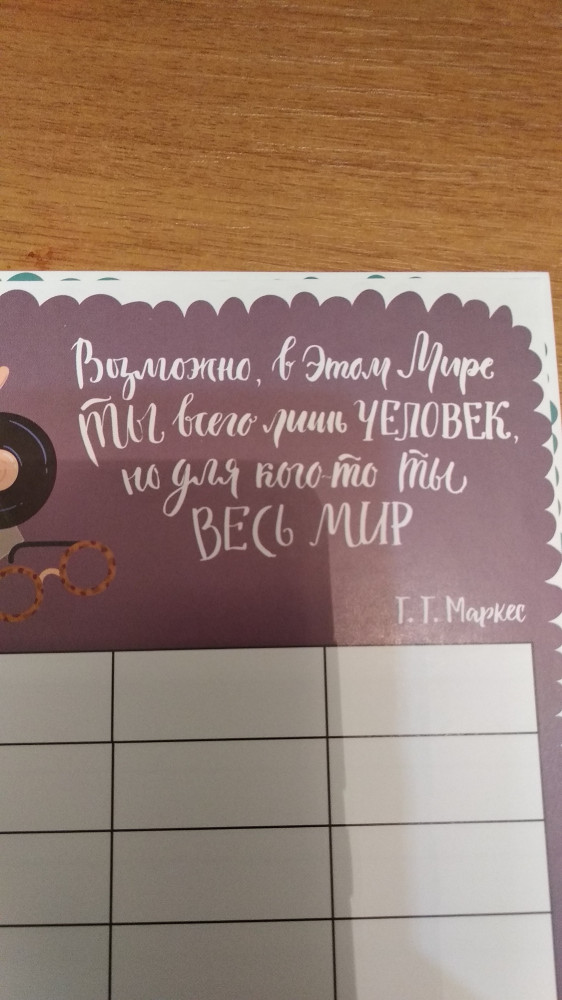 Возможно, в Этом Мире
ТЫ всего лишь ЧЕЛОВЕК,
но для кого-то ТЫ
ВЕСЬ МИР
Г. Г. Маркес